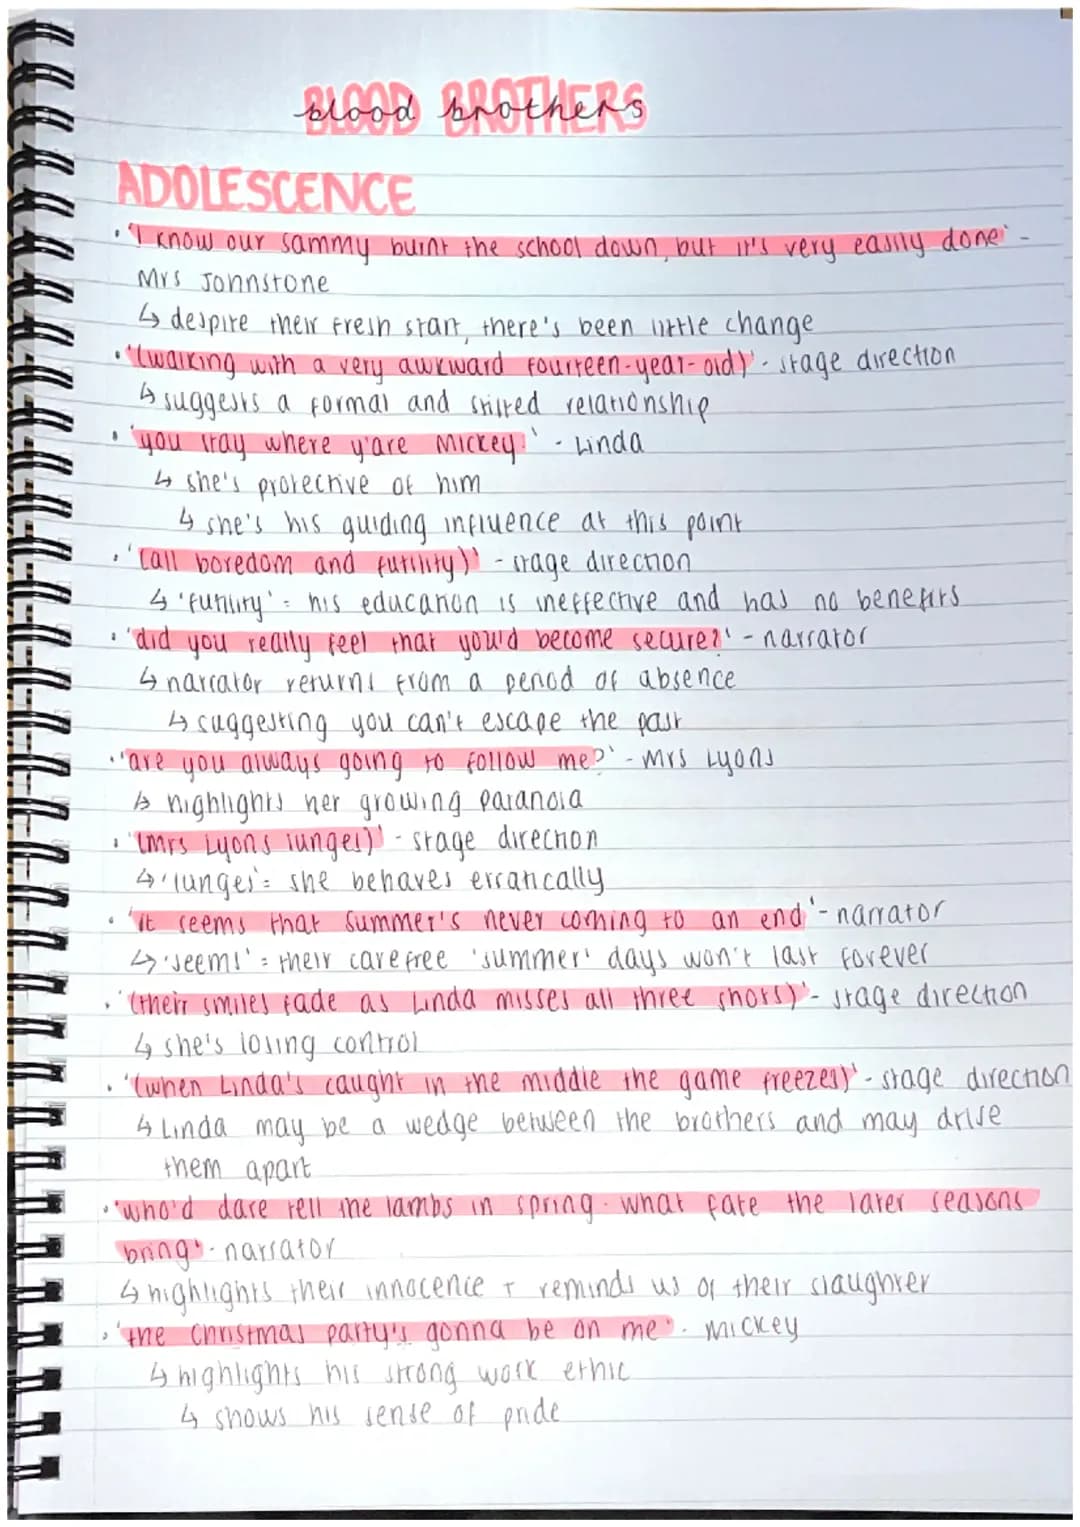 BLOOD BROTHERS
blood brothers
ADOLESCENCE
· 'I know our sammy burnt the school down, but it's very easily done' -
Mrs Johnstone
↳ despite their fresh start, there's been little change
· '(walking with a very awkward fourteen-year-old)' - stage direction
↳ suggests a formal and stilted relationship
· 'you stay where y'are Mickey.' - Linda
↳ she's protective of him
↳ she's his guiding influence at this point
· '(all boredom and futility)' - stage direction
↳ 'futility' = his education is ineffective and has no benefits
· 'did you really feel that you'd become secure?' - narrator
↳ narrator returns from a period of absence
↳ suggesting you can't escape the past
· 'are you always going to follow me?' - Mrs Lyons
↳ highlights her growing paranoia
· '(Mrs Lyons lunges)' - stage direction
↳ 'lunges' = she behaves erratically
· 'it seems that summer's never coming to an end' - narrator
↳ 'seems' = their carefree 'summer' days won't last forever
· '(their smiles fade as Linda misses all three shots)' - stage direction
↳ she's losing control
· '(when Linda's caught in the middle the game freezes)' - stage direction
↳ Linda may be a wedge between the brothers and may drive
them apart
· 'who'd dare tell the lambs in spring. what fate the later seasons
bring' - narrator
↳ highlights their innocence + reminds us of their slaughter
· 'the Christmas party's gonna be on me' - Mickey
↳ highlights his strong work ethic
↳ shows his sense of pride